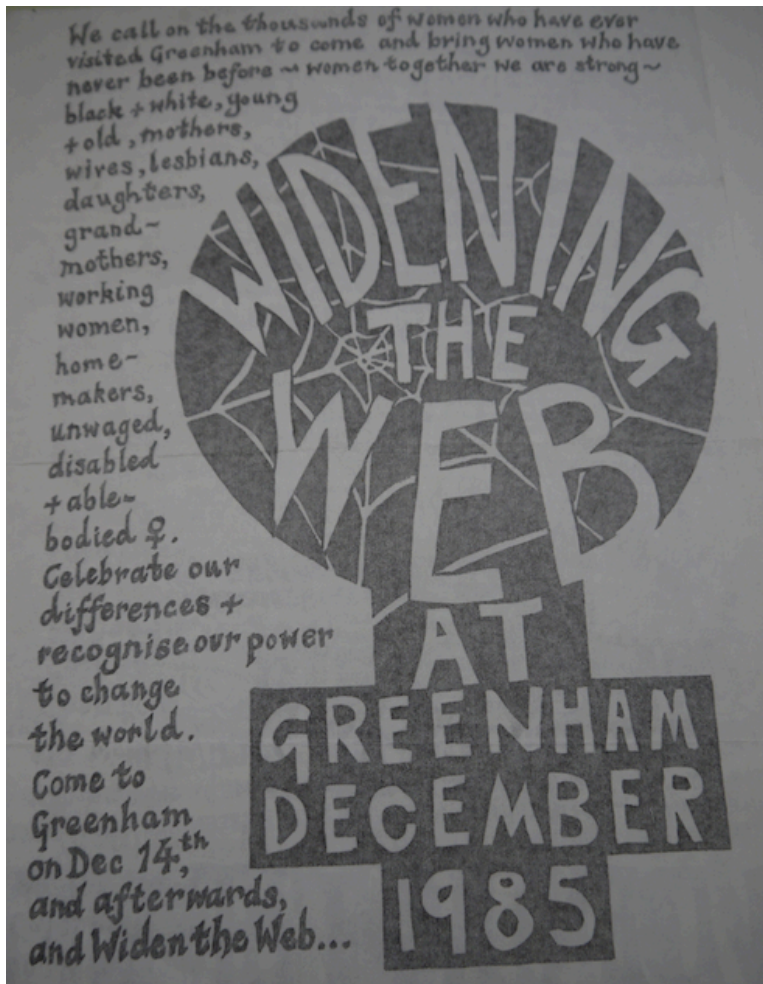 We call on the thousands of women who have ever
visited Greenham to come and bring women who have
never been before ~ women together we are strong ~
black + white, young
+ old, mothers,
wives, lesbians,
daughters,
grand-
mothers,
working
women,
home-
makers,
unwaged,
disabled
+ able-
bodied ♀.
Celebrate our
differences +
recognise our power
to change
the world.
Come to
Greenham
on Dec 14th,
and afterwards,
and Widen the Web...
WIDENING
THE
WEB
AT
GREENHAM
DECEMBER
1985